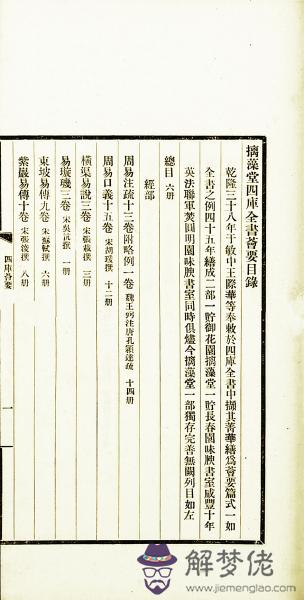 摛藻堂四庫全書薈要目錄
乾隆三十八年于敏中王際華等奉敕於四庫全書中擷其菁華繕爲薈要篇式一如
全書之例四十五年繕成二部一貯御花園摛藻堂一貯長春園味腴書室咸豐十年
英法聯軍焚圓明園味腴書室同時俱燼今摛藻堂一部獨存完善無闕列目如左
總目 六册
經部
周易注疏十三卷附略例一卷 魏王弼注唐孔穎達疏 十四册
周易口義十五卷 宋胡瑗撰 十二册
橫渠易說三卷 宋張載撰 三册
易璇璣三卷 宋吳沆撰 一册
東坡易傳九卷 宋蘇軾撰 六册
紫巖易傳十卷 宋張浚撰 八册
四庫薈要
一
解梦佬
www.jiemenglao.com